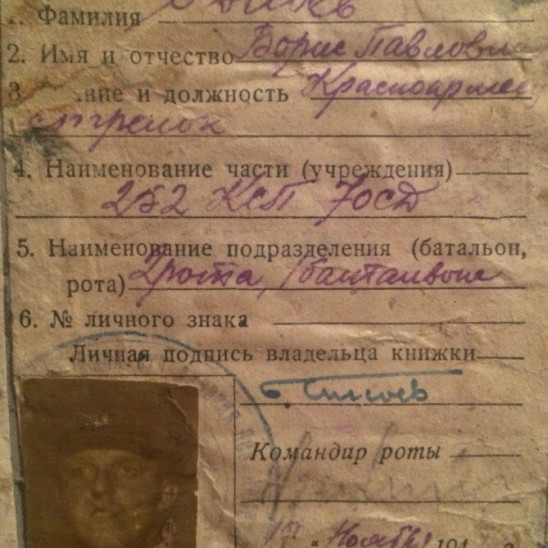 1. Фамилия
2. Имя и отчество Борис Павлович
3. звание и должность Красноармеец
стрелок
4. Наименование части (учреждения)
252 КСП 70СД
5. Наименование подразделения (батальон,
рота) 2 рота, 1 батальон
6. № личного знака
Личная подпись владельца книжки
Командир роты
17 " Ноября 194